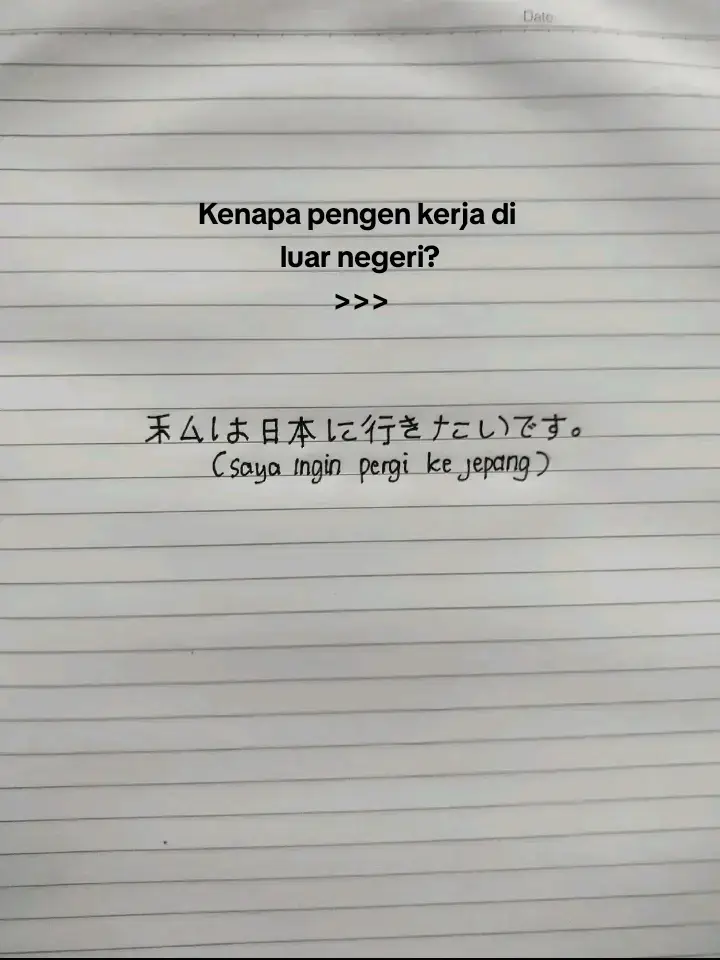 Date
Kenapa pengen kerja di
luar negeri?
>>>
私は日本に行きたいです。
(saya ingin pergi ke jepang)